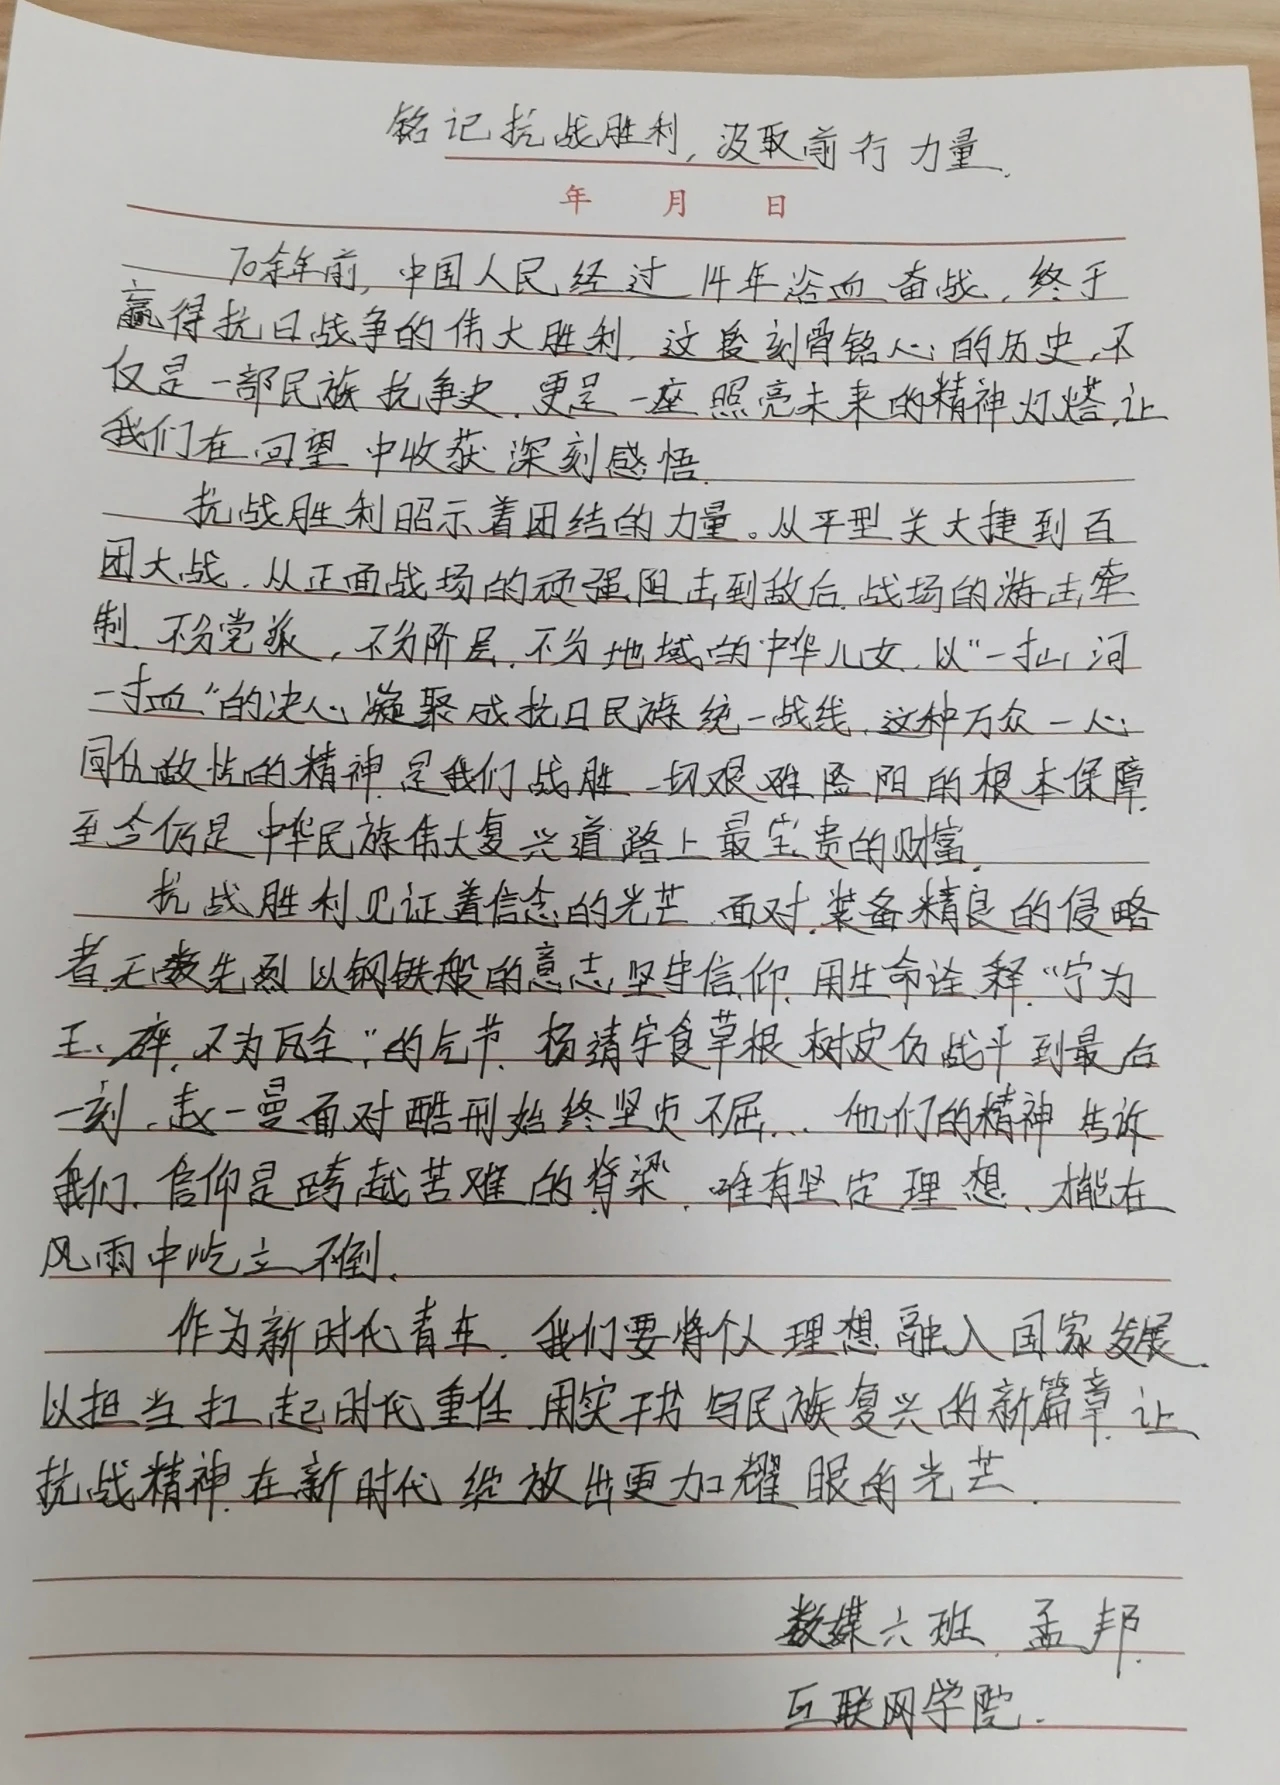 铭记抗战胜利,汲取前行力量.
年 月 日
70余年前,中国人民经过14年浴血奋战,终于
赢得抗日战争的伟大胜利,这段刻骨铭心的历史,不
仅是一部民族抗争史,更是一座照亮未来的精神灯塔,让
我们在回望中收获深刻感悟.
抗战胜利昭示着团结的力量。从平型关大捷到百
团大战,从正面战场的顽强阻击到敌后战场的游击牵
制,不分党派,不分阶层,不分地域的中华儿女,以“一寸山河
一寸血”的决心凝聚成抗日民族统一战线,这种万众一心
同仇敌忾的精神,是我们战胜一切艰难险阻的根本保障,
至今仍是中华民族伟大复兴道路上最宝贵的财富.
抗战胜利见证着信念的光芒,面对装备精良的侵略
者,无数先烈以钢铁般的意志坚守信仰,用生命诠释“宁为
玉碎,不为瓦全”的气节,杨靖宇食草根树皮仍战斗到最后
一刻,赵一曼面对酷刑始终坚贞不屈... 他们的精神告诉
我们,信仰是跨越苦难的脊梁,唯有坚定理想,才能在
风雨中屹立不倒.
作为新时代青年,我们要将个人理想融入国家发展,
以担当扛起时代重任,用实干书写民族复兴的新篇章,让
抗战精神在新时代绽放出更加耀眼的光芒.
数媒六班 孟邦.
互联网学院.